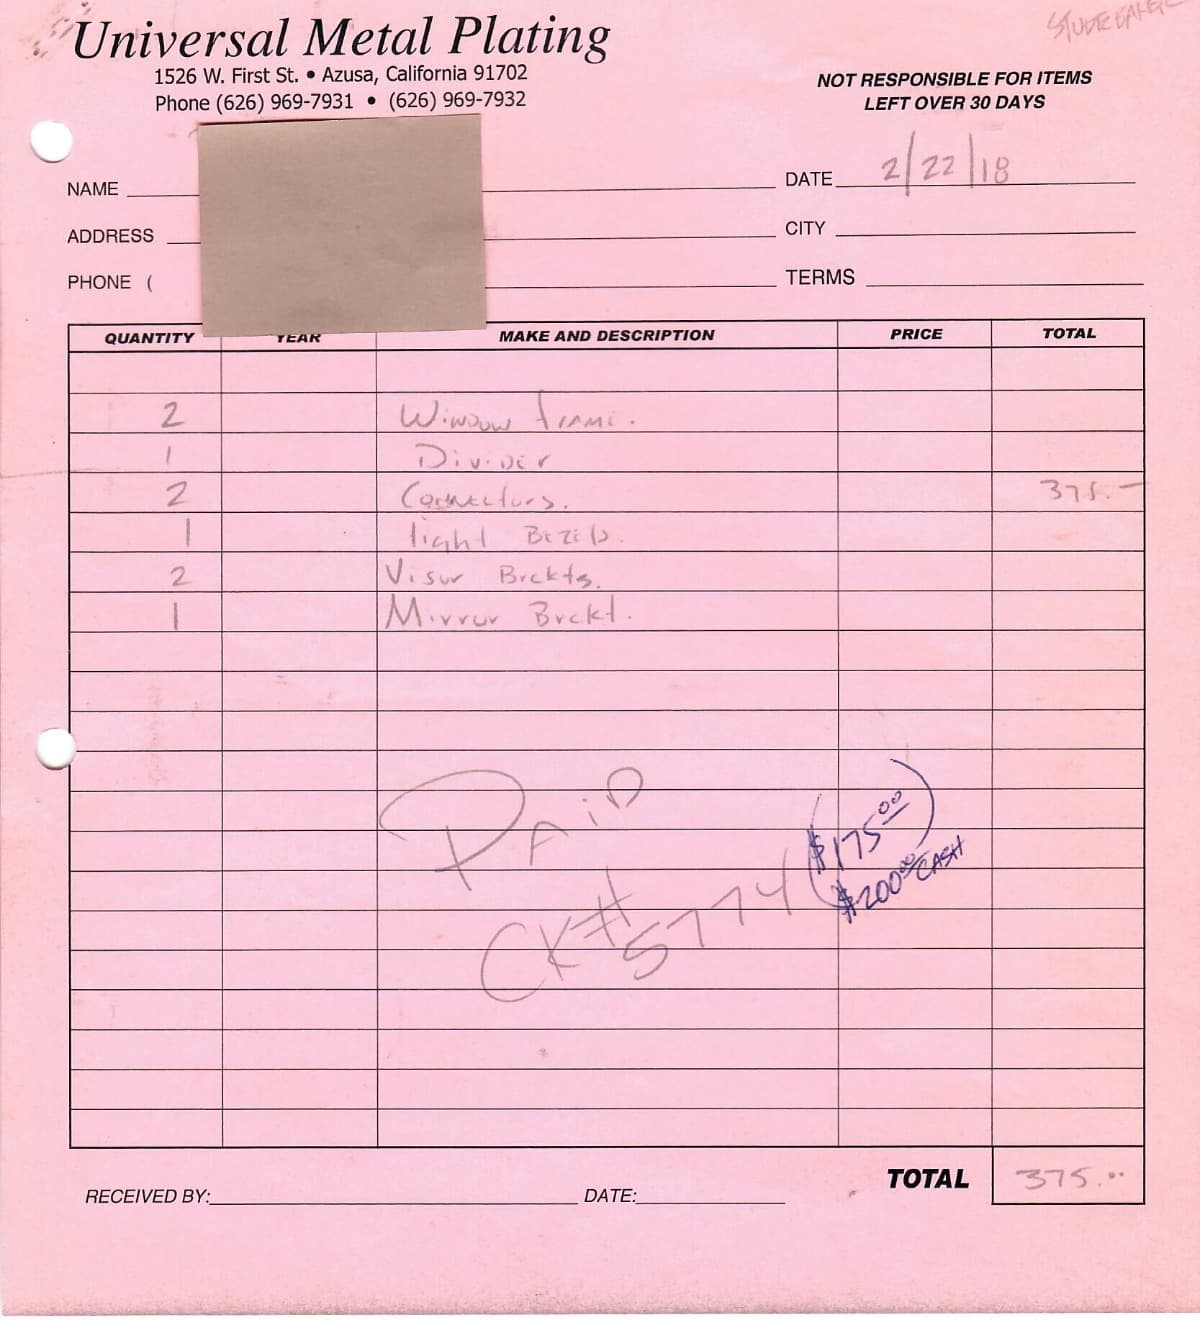 STUDEBAKER
Universal Metal Plating
1526 W. First St. • Azusa, California 91702
Phone (626) 969-7931 • (626) 969-7932
NOT RESPONSIBLE FOR ITEMS
LEFT OVER 30 DAYS
NAME
DATE 2/22/18
ADDRESS
CITY
PHONE (
TERMS
QUANTITY YEAR MAKE AND DESCRIPTION PRICE TOTAL
2 Window frame.
1 Divider
2 Connectors. 375.-
1 light Bezels.
2 Visur Brckts.
1 Mirrur Brckt.
PAID
CK# 5774
($175.00)
$200.00 CASH
TOTAL 375.00
RECEIVED BY: DATE: